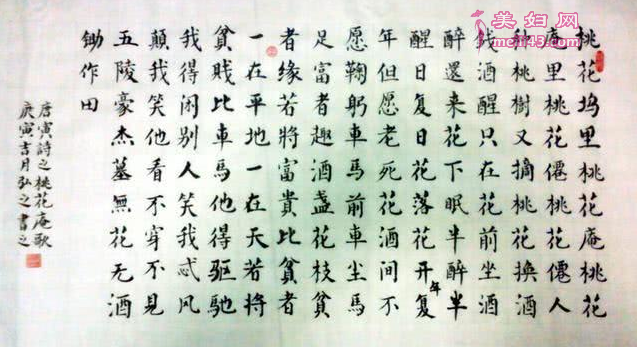 桃花坞里桃花庵桃花
庵里桃花僊桃花僊人
种桃樹又摘桃花換酒
钱酒醒只在花前坐酒
醉還来花下眠半醉半
醒日复日花落花开年复
年但愿老死花酒间不
愿鞠躬車馬前車尘馬
足富者趣酒盏花枝貧
者缘若將富貴比貧者
一在平地一在天若將
貧贱比車馬他得驱馳
我得闲别人笑我忒风
顛我笑他看不穿不見
五陵豪杰墓無花无酒
锄作田
唐寅詩之桃花庵歌
庚寅吉月弘之書之
美妇网